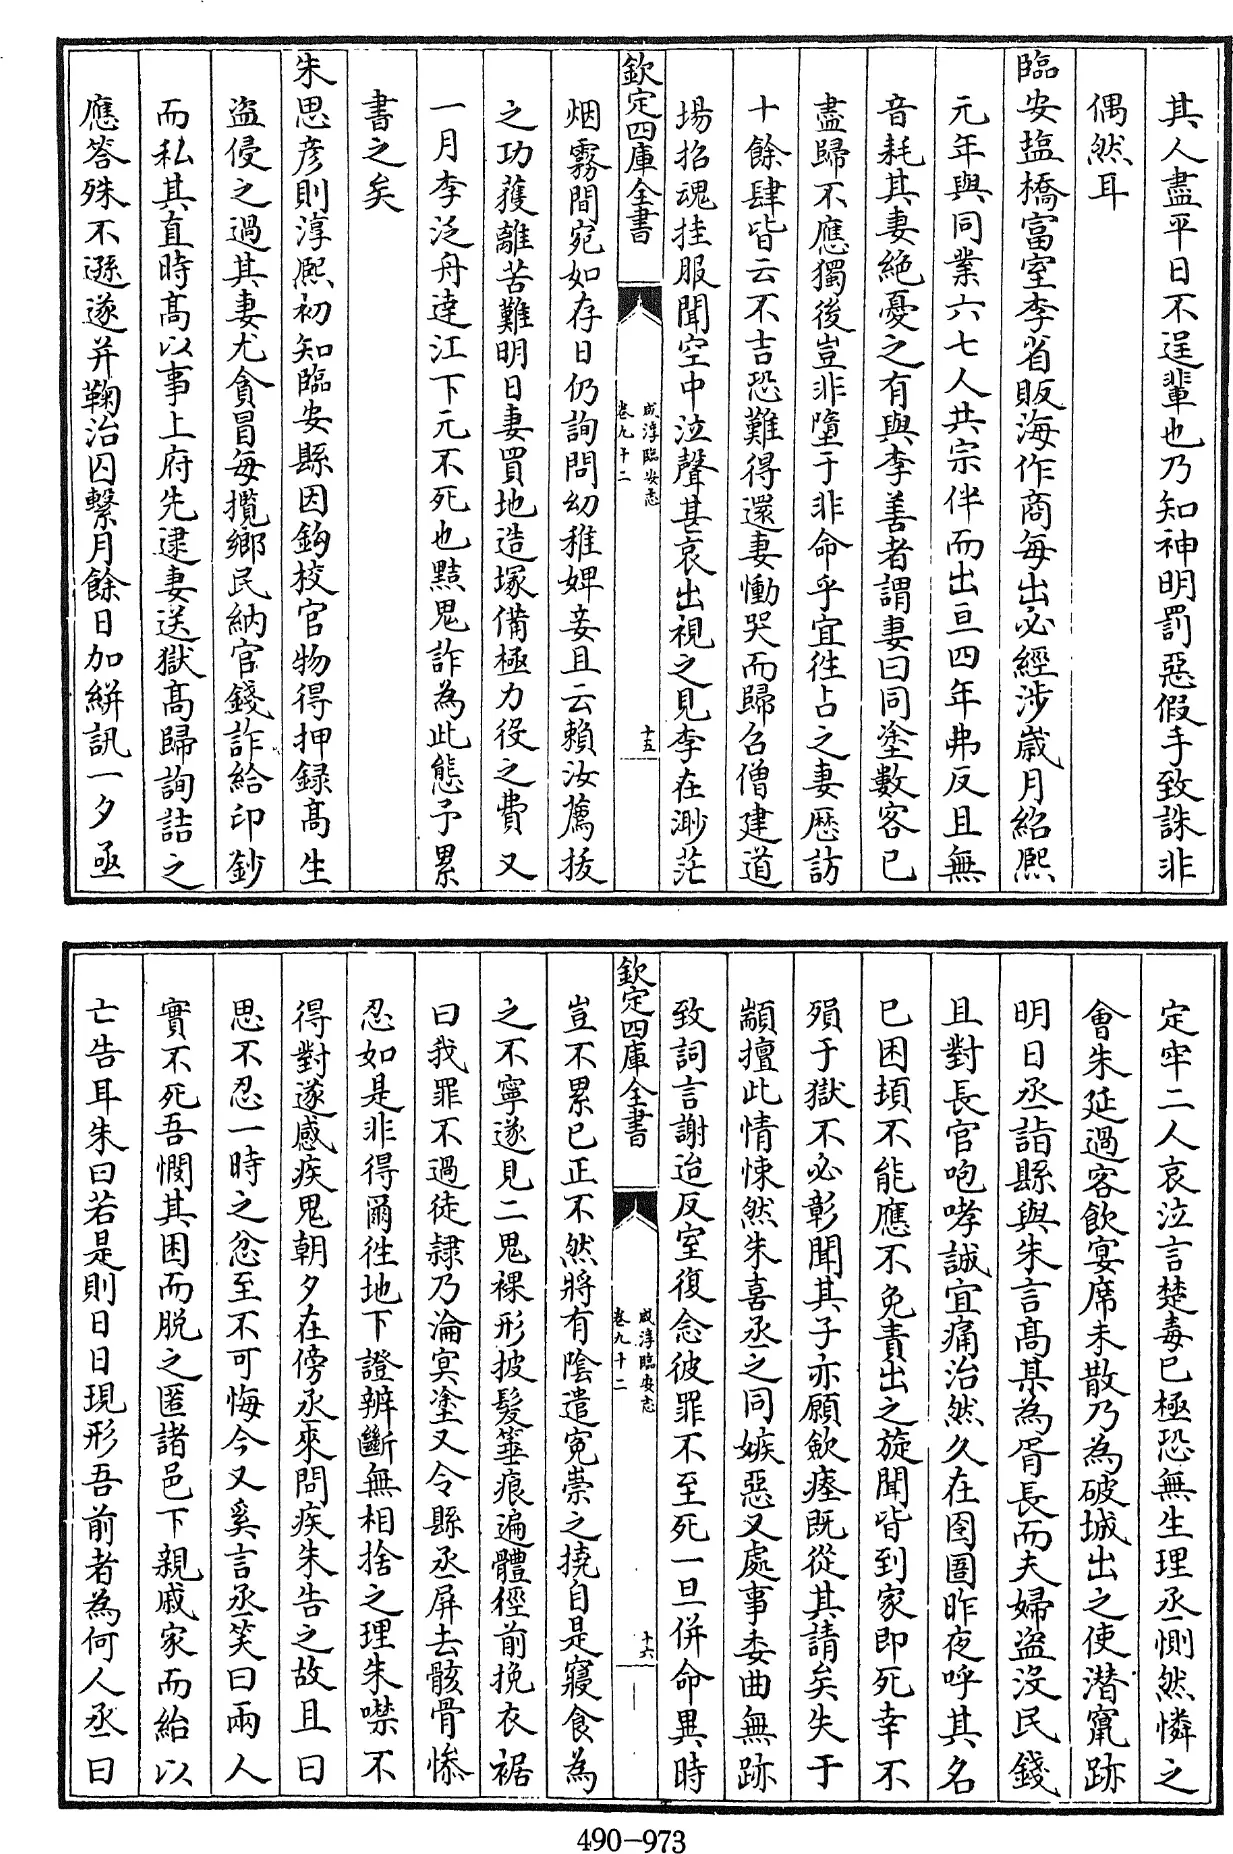 其人盡平日不逞輩也乃知神明罰惡假手致誅非
偶然耳
臨安塩橋富室李省販海作商每出必經涉歲月紹熙
元年與同業六七人共宗伴而出亘四年弗反且無
音耗其妻絶憂之有與李善者謂妻曰同塗數客已
盡歸不應獨後豈非墮于非命乎宜徃占之妻歴訪
十餘肆皆云不吉恐難得還妻慟哭而歸召僧建道
場招魂挂服聞空中泣聲甚哀出視之見李在渺茫
欽定四庫全書
咸淳臨安志
卷九十二
十五
烟霧間宛如存日仍詢問幼稚婢妾且云賴汝薦拔
之功獲離苦難明日妻買地造塚備極力役之費又
一月李泛舟達江下元不死也黠鬼詐為此態予累
書之矣
朱思彦則淳熙初知臨安縣因鈎校官物得押録髙生
盜侵之過其妻尤貪冒每攬鄉民納官錢詐給印鈔
而私其直時髙以事上府先逮妻送獄髙歸詢詰之
應答殊不遜遂并鞠治囚繫月餘日加絣訊一夕亟
定牢二人哀泣言楚毒已極恐無生理丞惻然憐之
會朱延過客飲宴席未散乃為破械出之使潜竄跡
明日丞詣縣與朱言髙某為胥長而夫婦盜沒民錢
且對長官咆哮誠宜痛治然久在囹圄昨夜呼其名
已困頓不能應不免責出之旋聞皆到家即死幸不
殞于獄不必彰聞其子亦願歛瘞既從其請矣失于
顓擅此情悚然朱喜丞之同嫉惡又處事委曲無跡
致詞言謝迨反室復念彼罪不至死一旦併命異時
欽定四庫全書
咸淳臨安志
卷九十二
十六
豈不累已正不然將有陰遣寃祟之撓自是寢食為
之不寧遂見二鬼裸形披髮箠痕遍體徑前挽衣裾
曰我罪不過徒隸乃淪冥塗又令縣丞屏去骸骨慘
忍如是非得爾徃地下證辨斷無相捨之理朱噤不
得對遂感疾鬼朝夕在傍丞來問疾朱告之故且曰
思不忍一時之忿至不可悔今又奚言丞笑曰兩人
實不死吾憫其困而脱之匿諸邑下親戚家而紿以
亡告耳朱曰若是則日日現形吾前者為何人丞曰
490-973